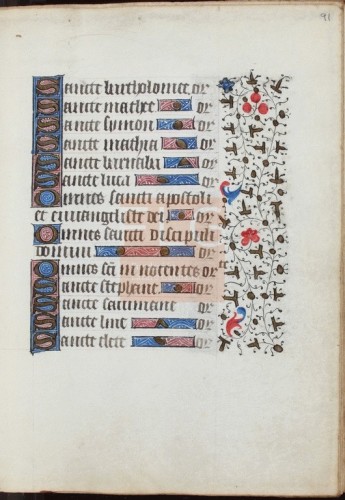 91
Sancte bartholomee or
Sancte mathee or
Sancte symon or
Sancte mathia or
Sancte barnaba or
Sancte luca or
Omnes sancti apostoli
et euuangeliste dei or
Omnes sancti discipuli
domini or
Omnes sci innocentes or
Sancte stephane or
Sancte or
Sancte line or
Sancte clete or